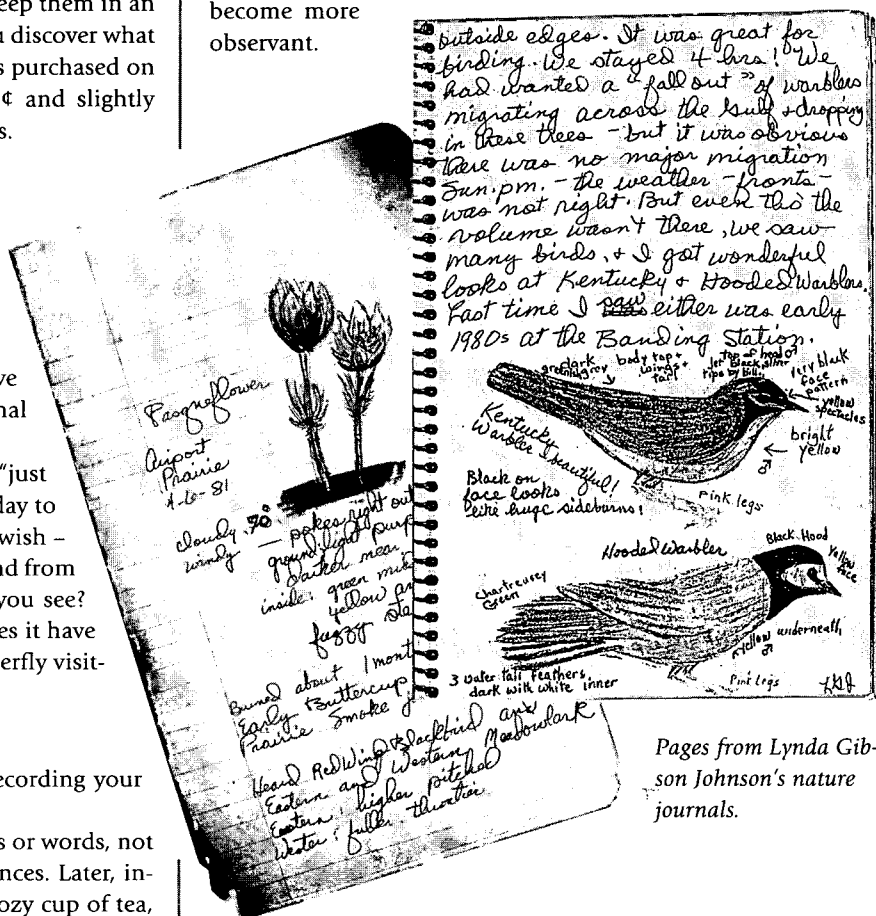 eep them in an
u discover what
s purchased on
¢ and slightly
s.
become more
observant.
ve
nal
"just
day to
wish –
nd from
you see?
es it have
erfly visit-
ecording your
s or words, not
nces. Later, in-
ozy cup of tea,
outside edges. It was great for
birding. We stayed 4 hrs! We
had wanted a "fall out" of warblers
migrating across the Gulf & dropping
in these trees – but it was obvious
there was no major migration
Sun. pm. – the weather – fronts –
was not right. But even tho the
volume wasn't there, we saw
many birds, & I got wonderful
looks at Kentucky & Hooded Warblers.
Last time I saw either was early
1980s at the Banding Station.
dark
greenish grey
body top +
wings +
tail
top of head
black
tips by bill
very black
face
pattern
yellow
spectacles
bright
yellow
♂
Kentucky
Warbler – beautiful!
Black on
face looks
like huge sideburns!
Pink legs
Hooded Warbler
Black Hood
Yellow
face
Chartreusey
Green
yellow underneath
♂
3 outer tail feathers
dark with white inner
Pink legs
LGJ
Pasqueflower
Airport
Prairie
4-6-81
cloudy, 70°
windy — pokes right out
ground. light purp
darker near
inside: green mid
yellow
fuzzy ste
Burned about 1 month
Early Buttercup
Prairie Smoke
Heard RedWing Blackbird and
Eastern and Western Meadowlark
Eastern, higher pitched
Wester: fuller throatier
Pages from Lynda Gib-
son Johnson's nature
journals.